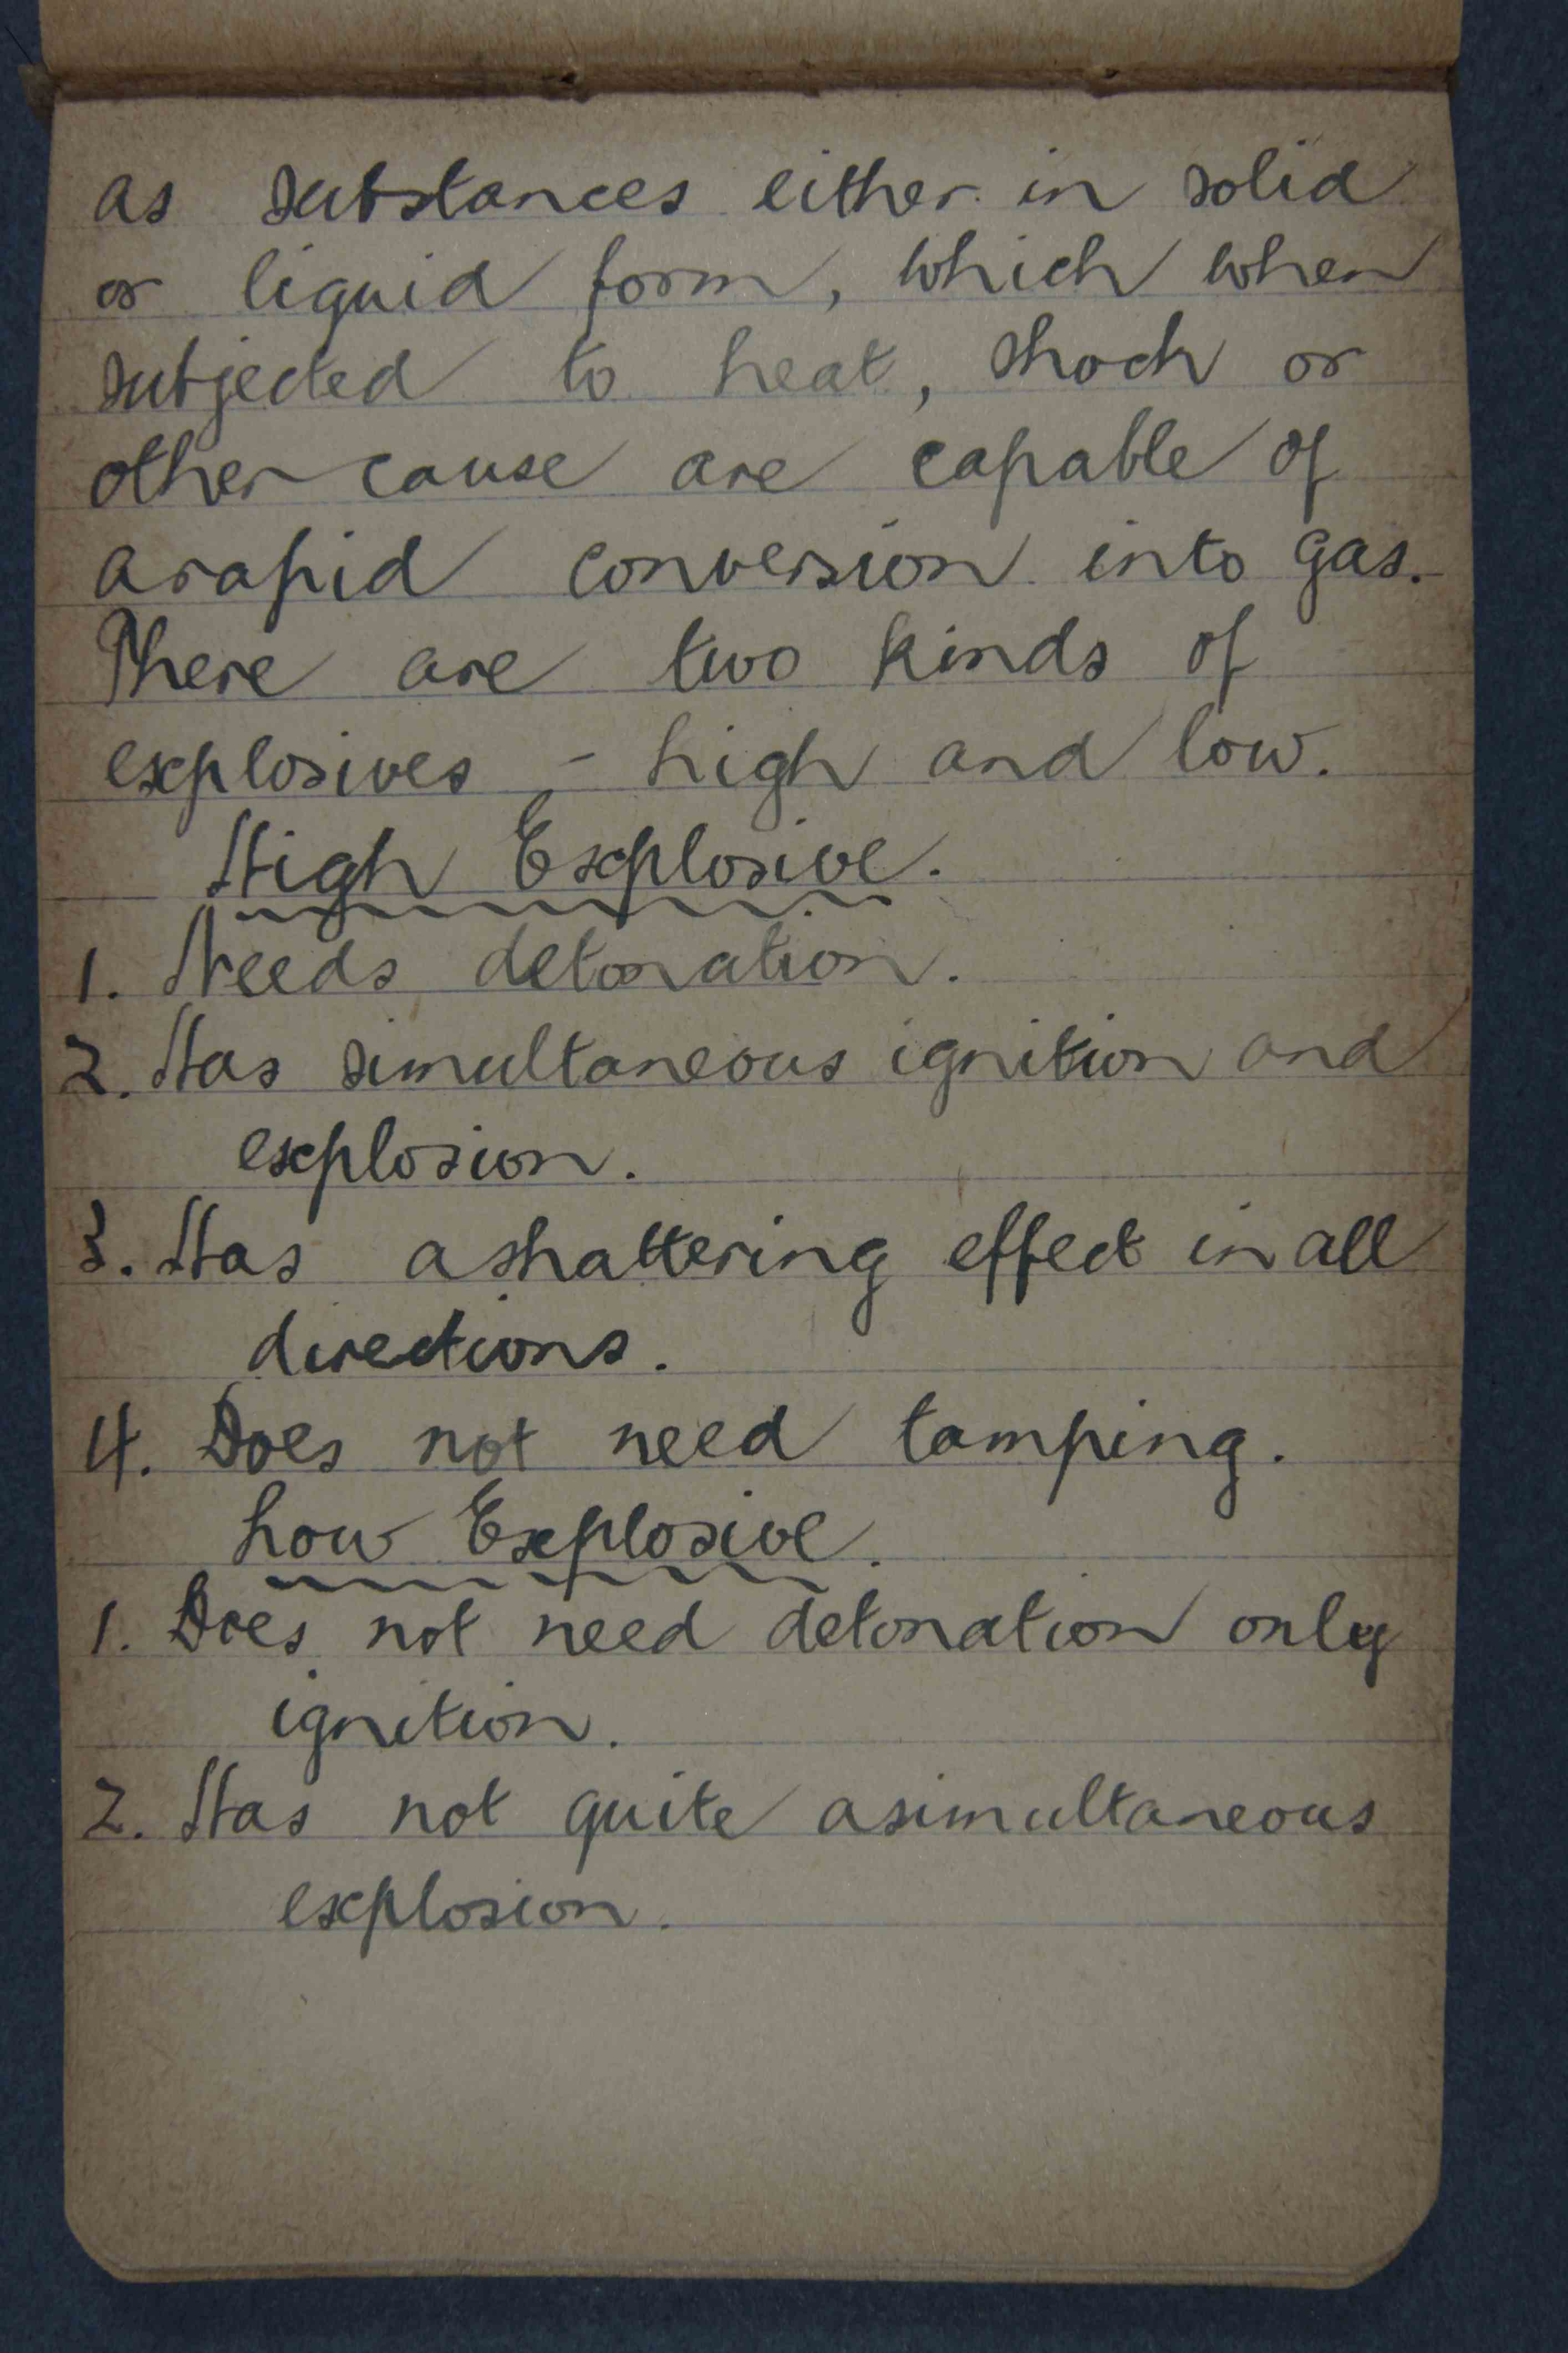 as substances either in solid
or liquid form, which when
subjected to heat, shock or
other cause are capable of
a rapid conversion into gas.
There are two kinds of
explosives - high and low.
High Explosive.
1. Needs detonation.
2. Has simultaneous ignition and
explosion.
3. Has a shattering effect in all
directions.
4. Does not need tamping.
Low Explosive.
1. Does not need detonation only
ignition.
2. Has not quite a simultaneous
explosion.